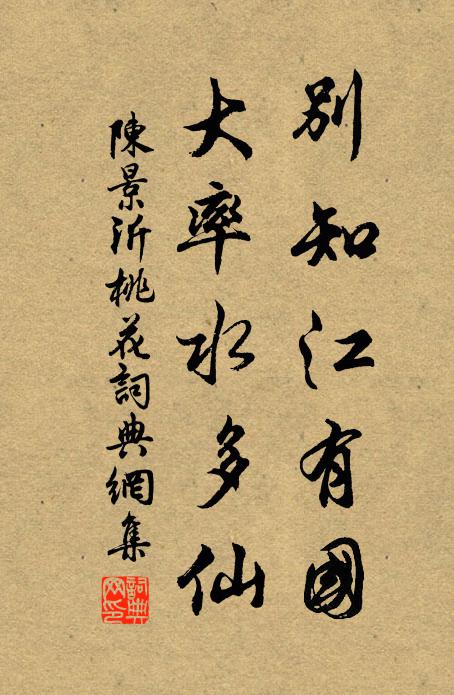 別知江有國
大率水多仙
陳景沂桃花詞典網集
詞典網印